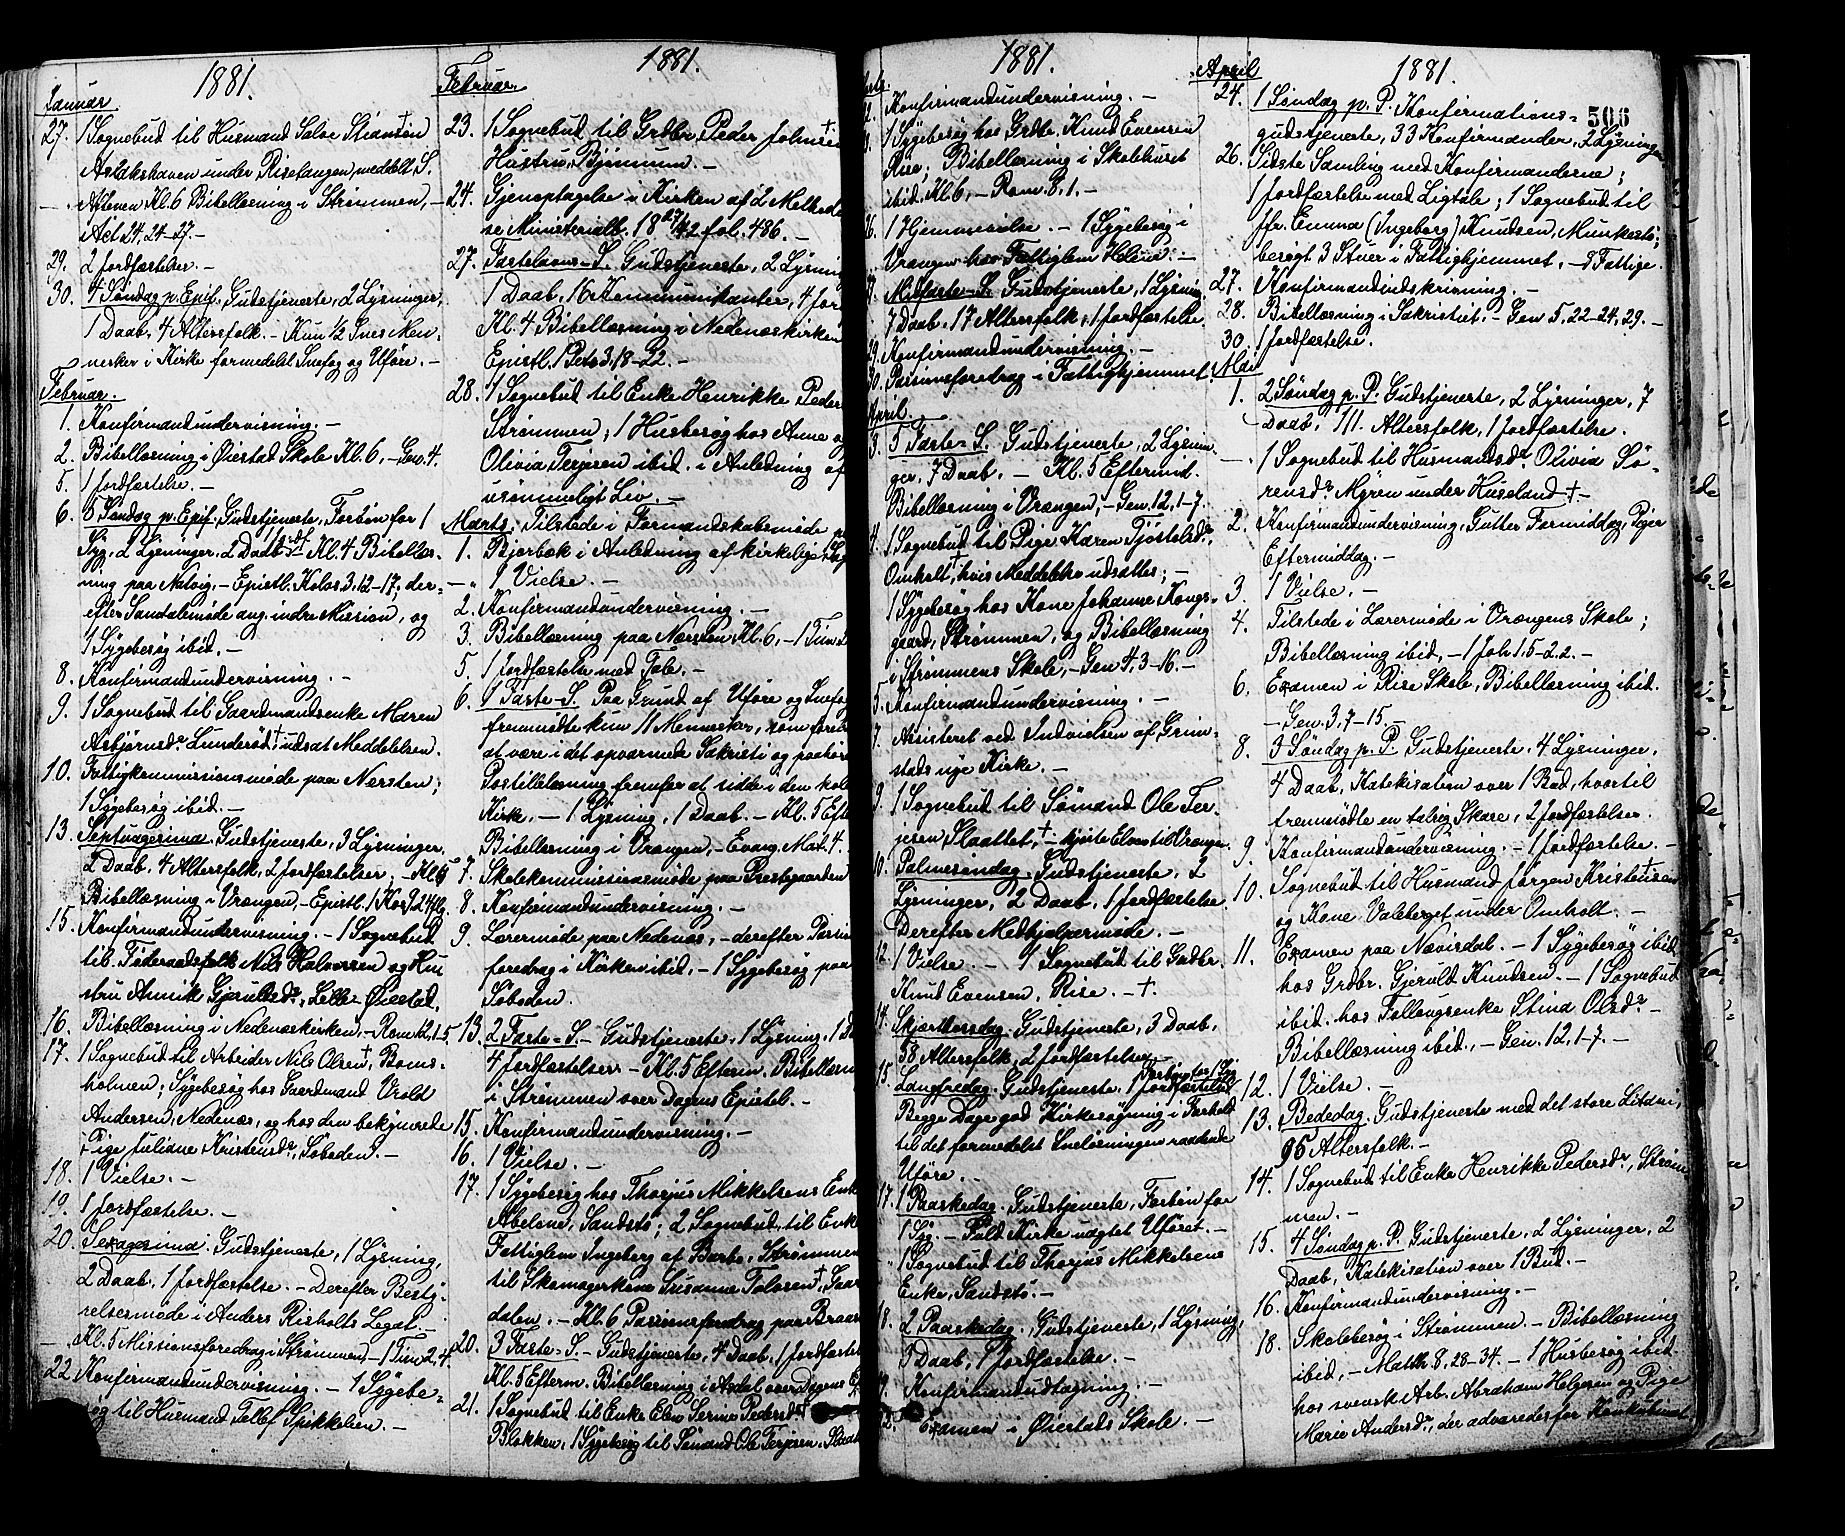 1881.
Januar
27. 1 Sognebud til Husmand Salve Stianson †
Aslakshaven under Risetangen, meddelt S.
Altenen Kl. 6 Bibellæsning i Strømmen, -
i Act 24, 24-27. -
29. 2 Jordfæstelser. -
30. 4 Søndag p. Epif. Gudstjeneste, 2 Lysninger,
1 Daab, 4 Altersfolk. - Kun ½ Snes Men-
nesker i Kirke formedelst Snefog og Uføre. -
Februar.
1. Konfirmandundervisning. -
2. Bibellæsning i Øiestad Skole Kl. 6, - Gen. 4.
5. 1 Jordfæstelse. -
6. 5 Søndag p. Epif. Gudstjeneste, Forbøn for 1
Syg, 2 Lysninger, 2 Daab Kl. 4 Bibellæs-
ning paa Natvig. - Epistl. Kolos. 3. 12-17; der-
efter Samtalemøde ang. indre Mission, og
1 Sygebesøg ibid. -
8. Konfirmandundervisning. -
9. 1 Sognebud til Gaardmandsenke Maren
Asbjørnsdr. Lunderød, † udsat Meddelelsen.
10. Fattigkommissionsmøde paa Nersten;
1 Sygebesøg ibid. -
13. Septuagesima Gudstjeneste, 3 Lysninger,
2 Daab, 4 Altersfolk, 2 Jordfæstelser; - Kl. 5
Bibellæsning i Vrængen, - Epistl. 1 Kor. 9. 24
15. Konfirmandundervisning. - 1 Sognebud
til Føderaadsfolk Nils Halvorsen og Hu-
stru Annik Gjeruldsdr., Lille Øiestad.
16. Bibellæsning i Nedenæskirken, - Rom. 12, 1-5.
17. 1 Sognebud til Arbeider Nils Olsen †, Boms-
holmen; Sygebesøg hos Gaardmand Vrold
Andersen, Nedenæs, og hos den bekymrede
Pige Juliane Kristensdr., Søbøden. -
18. 1 Vielse. -
19. 1 Jordfæstelse. -
20. Sexagesima. Gudstjeneste, 1 Lysning,
2 Daab, 1 Jordfæstelse. - Derefter Besty-
relsesmøde i Anders Risholts Legat. -
Kl. 5 Missionsforedrag i Strømmen, - 1 Tim 2, 4.
22. Konfirmandundervisning. - 1 Sygebe-
søg til Husmand Tellef Spikkelien. -
1881.
Februar.
23. 1 Sognebud til Grdbr. Peder Johnsens †
Hustru, Bjønnum. -
24. Gjenoptagelse i Kirken af 2 Methodi
se Ministerialb. 18 fol. 486. -
27. Fastelavns-S. Gudstjeneste, 2 Lysning
1 Daab, 16 Kommunikanter, 4 Jor
Kl. 4 Bibellæsning i Nedenæskirken
Epistl. 1 Petr. 3, 18-22. -
28. 1 Sognebud til Enke Henrikke Peder
Strømmen; 1 Husbesøg hos Anne og
Olivia Terjesen ibid. i Anledning af
usømmeligt Liv. -
Marts. Tilstede i Formandskabsmøde p
1. Bjorbæk i Anledning af kirkelige
- " 1 Vielse. -
2. Konfirmandundervisning. -
3. Bibellæsning paa Nersten Kl. 6, - 1 Tim.
5. 1 Jordfæstelse med Tale. -
6. 1 Faste-S. Paa Grund af Uføre og Snefog
fremmødte kun 11 Mennesker, som fored
at være i det opvarmede Sakristi og paahøre
Postillelæsning fremfor at sidde i den kolde
Kirke. - 1 Lysning, 1 Daab. - Kl. 5 Efter
Bibellæsning i Vrængen, - Evang. Mat. 4.
7. Skolekommissionsmøde paa Prestgaarden
8. Konfirmandundervisning. -
9. Lærermøde paa Nedenæs, - derefter Passions
foredrag i Kirken ibid, - 1 Sygebesøg paa
Søboden.
13. 2 Faste-S. - Gudstjeneste, 1 Lysning, 1 D
4 Jordfæstelser - Kl. 5 Efterm. Bibellæsn
i Strømmen over Dagens Epistel. -
15. Konfirmandundervisning. -
16. 1 Vielse. -
17. 1 Sygebesøg hos Thorjus Mikkelsens Enke
Abelone, Sandstø; 2 Sognebud, til Enke
Fattiglem Ingeborg af Barbo, Strømmen
til Skomagerkone Susanne Tolvsen †, Gaar
dalen. - Kl. 6 Passionsforedrag paa Braas
20. 3 Faste-S. - Gudstjeneste, 4 Daab, 1 Jordfæst
Kl. 5 Efterm. Bibellæsning i Asdal over Dagens
21. 1 Sognebud til Enke Elen Serine Pedersdr. †
Blakken, 1 Sygebesøg til Sømand Ole Terjesen, Slaat
1881.
Konfirmandundervisning. -
1 Sygebesøg hos Grdbr. Knud Evensen
Rise; Bibellæsning i Skolehuset
ibid. Kl. 6, - Rom. 8. 1. -
26. 1 Hjemmevielse. - 1 Sygebesøg i
Vrængen hos Fattiglem Helene. -
Midfaste-S. Gudstjeneste, 1 Lysning,
7 Daab, 17 Altersfolk, 1 Jordfæstelse.
29. Konfirmandundervisning. -
30. Passionsforedrag i Fattighjemmet.
April.
3. 5 Faste-S. Gudstjeneste, 2 Lysnin-
ger, 7 Daab, - Kl. 5 Eftermid.
Bibellæsning i Vrængen, - Gen. 12, 1-7.
4. 1 Sognebud til Pige Karen Tjøstolsdr.,
Omholt, † hvis Meddelelse udsattes; -
1 Sygebesøg hos Kone Johanne Kongs-
gaard, Strømmen, og Bibellæsning
i Strømmens Skole, - Gen. 4, 3-16. -
5. Konfirmandundervisning. -
7. Assisteret ved Indvielsen af Grim-
stads nye Kirke. -
9. 1 Sognebud til Sømand Ole Ter-
jesen, Slaattet, † -
10. Palmesøndag. Gudstjeneste, 2
Lysninger, 2 Daab, 1 Jordfæstelse.
Derefter Medhjælpermøde. -
12. 1 Vielse. - 1 Sognebud til Grdbr.
Knud Evensen, Rise. - †.
14. Skjærthorsdag. Gudstjeneste, 3 Daab,
58 Altersfolk, 2 Jordfæstelser. -
Forbøn for 1 Syg
15. Langfredag. Gudstjeneste, 1 Jordfæstelse
Begge Dage god Kirkesøgning i Forhold
til det formedelst Sneløsningen raadende
Uføre. -
17. 1 Paaskedag. Gudstjeneste, Forbøn for
1 Syg. - Fuld Kirke uagtet Uføret. -
" 1 Sognebud til Thorjus Mikkelsens
Enke, Sandstø. -
18. 2 Paaskedag. Gudstjeneste, 1 Lysning,
3 Daab, 1 Jordfæstelse. -
19. Konfirmandudtagning. -
Examen i Øiestads Skole. -
1881.
506
April
24. 1 Søndag p. P. Konfirmations-
gudstjeneste, 33 Konfirmander, 2 Lysninger
26. Sidste Samling med Konfirmanderne;
1 Jordfæstelse med Ligtale; 1 Sognebud til
Fr. Emma (Ingeborg) Knudsen, Munkestø;
besøgt 3 Stuer i Fattighjemmet, - 8 Fattige.
27. Konfirmandindskrivning. -
28. Bibellæsning i Sakristiet. - Gen 5, 22-24, 29. -
30. 1 Jordfæstelse.
Mai
1. 2 Søndag p. P. Gudstjeneste, 2 Lysninger, 7
Daab, 111 Altersfolk, 1 Jordfæstelse.
- 1 Sognebud til Husmandsdr. Olivia Sø-
rensdr. Myren under Huseland † -
2. Konfirmandundervisning, Gutter Formiddag, Piger
Eftermiddag. -
3. 1 Vielse. -
4. Tilstede i Lærermøde i Vrængens Skole;
Bibellæsning ibid, - 1 Joh. 1, 5-2. 2. -
6. Examen i Rise Skole, Bibellæsning ibid.
- Gen. 3, 7-15. -
8. 3 Søndag p. P. Gudstjeneste, 4 Lysninger,
4 Daab, Katekisation over 1 Bud, hvortil
fremmødte en talrig Skare, 2 Jordfæstelser.
9. Konfirmandundervisning. - 1 Jordfæstelse. -
10. Sognebud til Husmand Jørgen Kristensen †
og Kone Valeberget under Omholt. -
11. Examen paa Nævisdal. - 1 Sygebesøg ibid
hos Grdbr. Gjeruld Knudsen. - 1 Sognebud
ibid. hos Follaugsenke Stina Olsdr. -
Bibellæsning ibid., - Gen. 12, 1-7. -
12. 1 Vielse. -
13. Bededag. Gudstjeneste med det store Litani,
95 Altersfolk. -
14. 1 Sognebud til Enke Henrikke Pedersdr., Strøm-
men. -
15. 4 Søndag p. P. Gudstjeneste, 2 Lysninger, 2
Daab, Katekisation over 1 Bud. -
16. Konfirmandundervisning. -
18. Skolebesøg i Strømmen. - Bibellæsning
ibid, - Matth. 8, 28-34. - 1 Husbesøg ibid.
hos svensk Arb. Abraham Helgesen og Pige
Marie Andersdr., der advaredes for Konkubinat